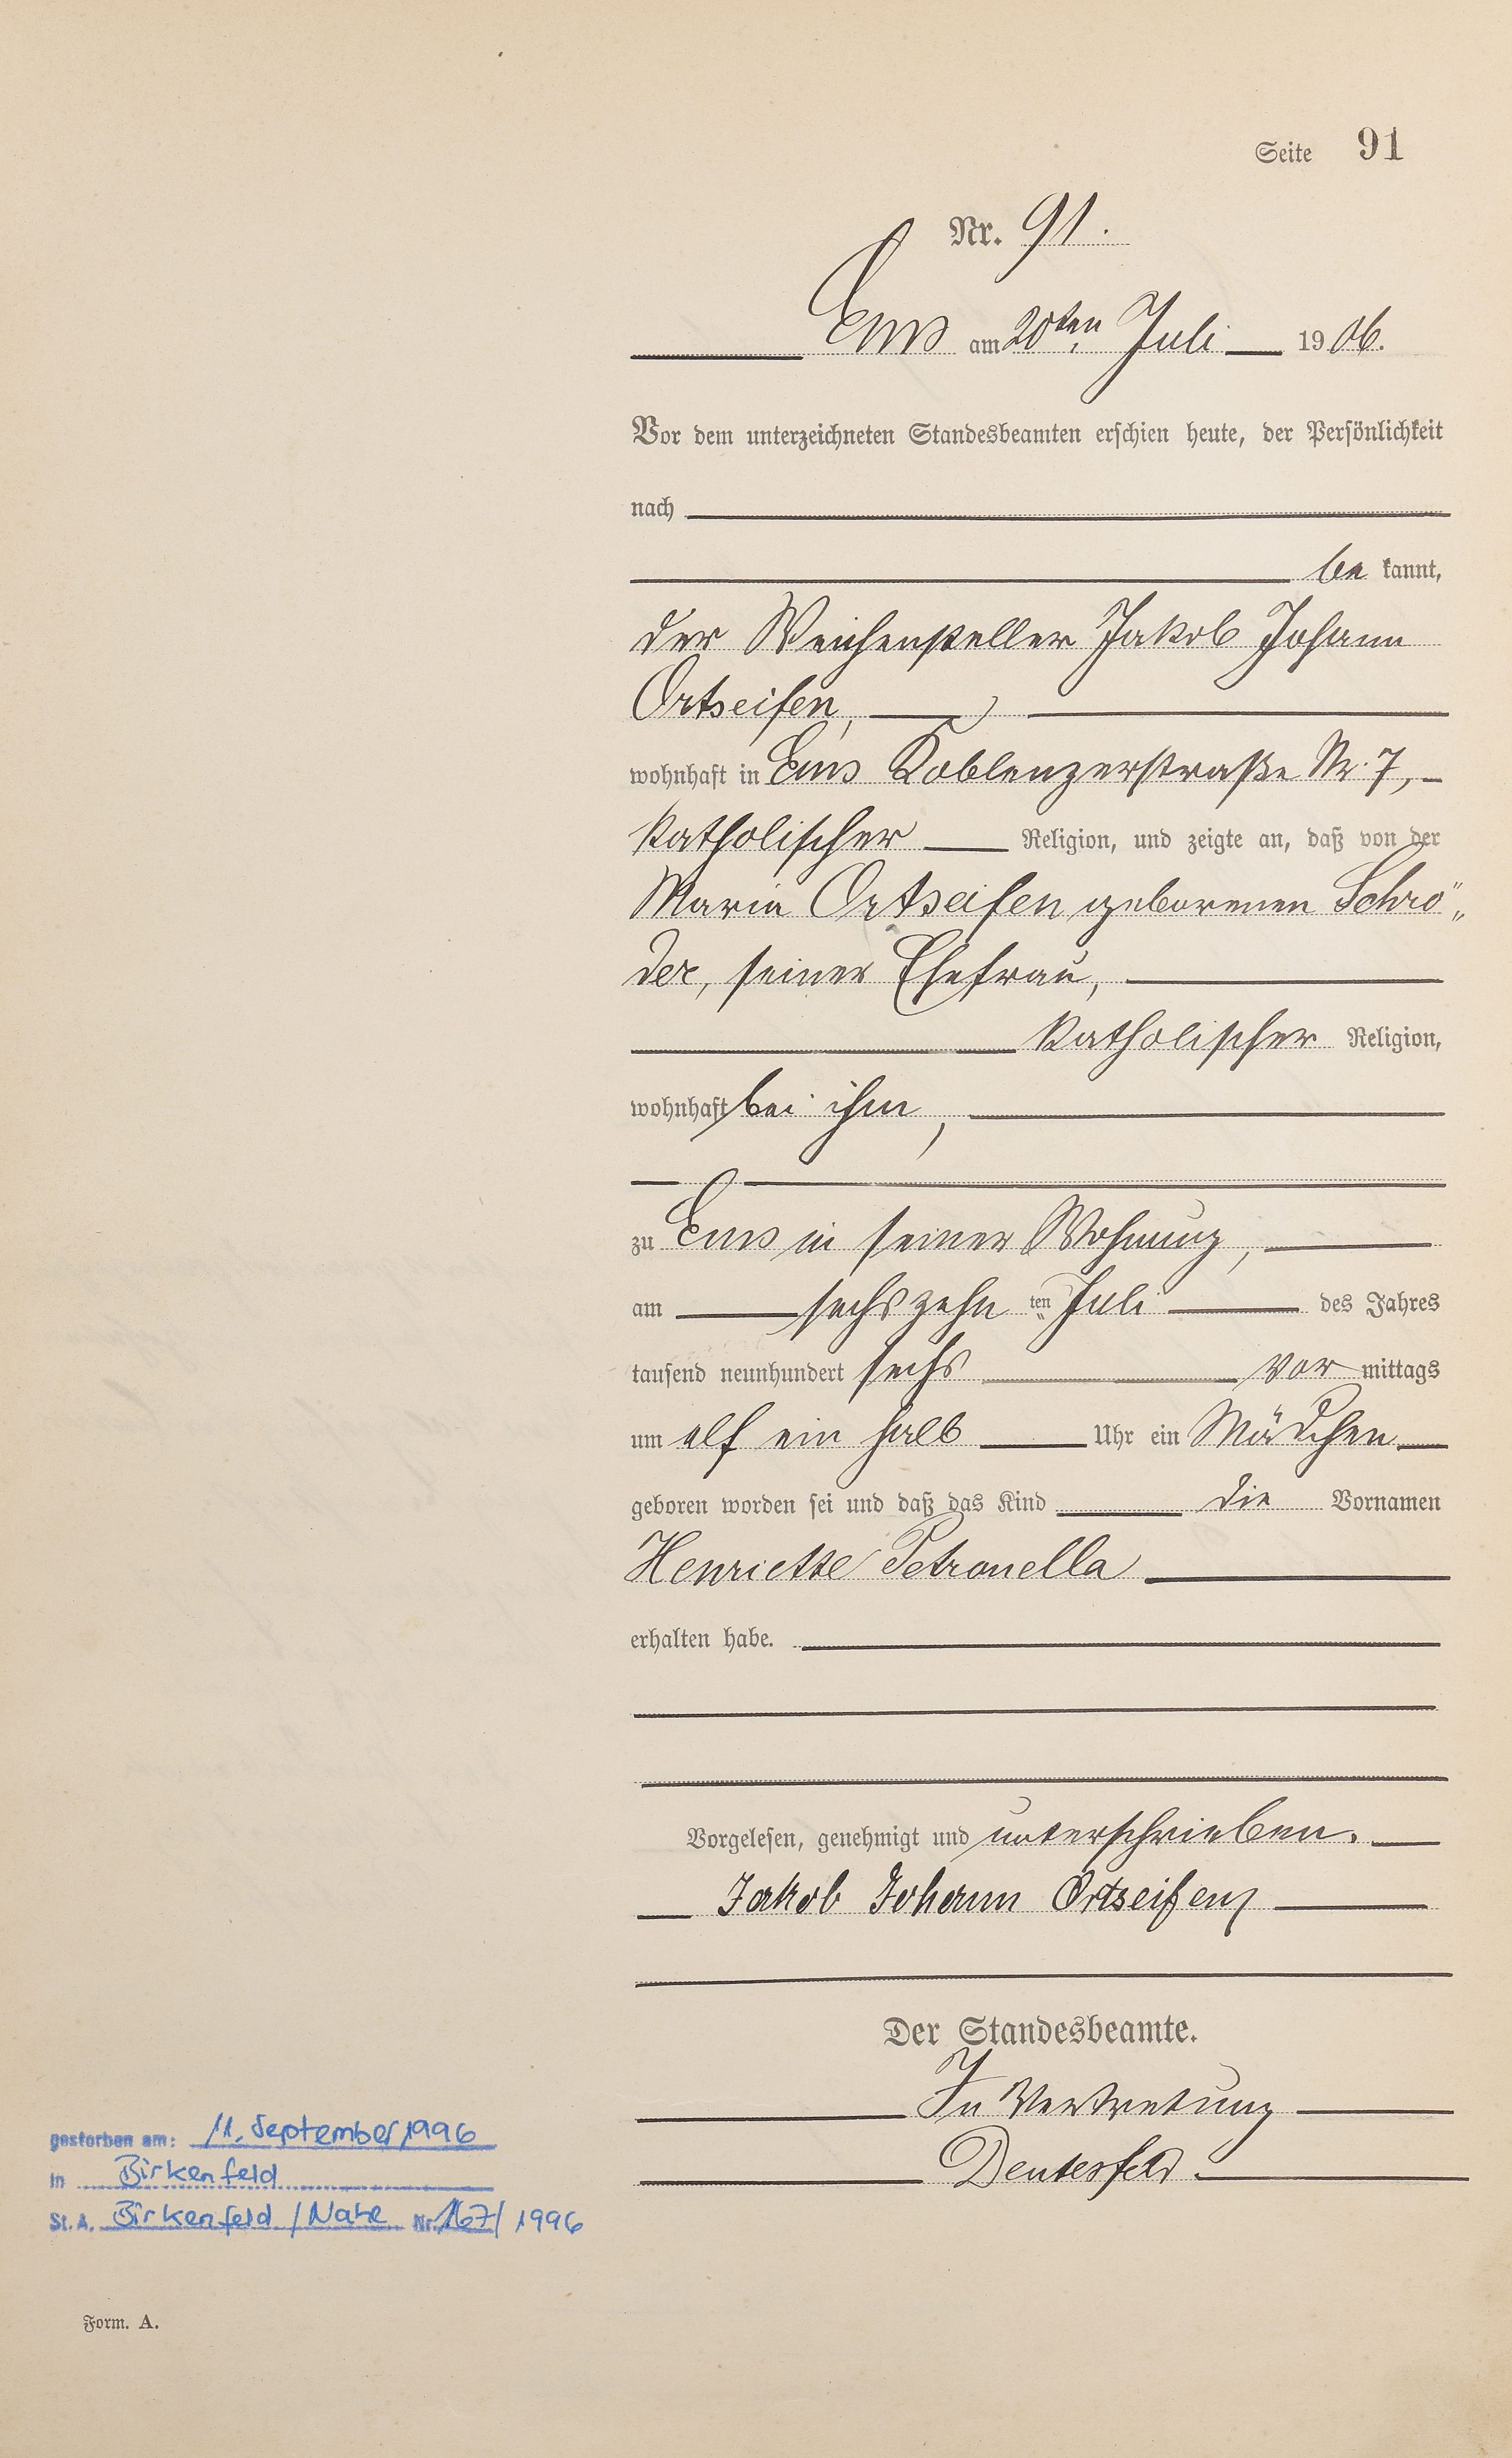 Seite 91
Nr. 91.
Ems am 20ten Juli 1906.
Vor dem unterzeichneten Standesbeamten erschien heute, der Persönlichkeit
nach
be kannt,
der Weichensteller Jakob Johann
Ortseifen,
wohnhaft in Ems Koblenzerstraße Nr. 7,
katholischer Religion, und zeigte an, daß von der
Maria Ortseifen geborenen Schrö„
der, seiner Ehefrau,
katholischer Religion,
wohnhaft bei ihm,
zu Ems in seiner Wohnung,
am sechszehn ten Juli des Jahres
tausend neunhundert sechs vor mittags
um elf ein halb Uhr ein Mädchen
geboren worden sei und daß das Kind die Vornamen
Henriette Petronella
erhalten habe.
Vorgelesen, genehmigt und unterschrieben.
Jakob Johann Ortseifen
Der Standesbeamte.
In Vertretung
Deutesfeld.
gestorben am: 11. September 1996
in Birkenfeld
St. A. Birkenfeld / Nahe Nr. 167/1996
Form. A.